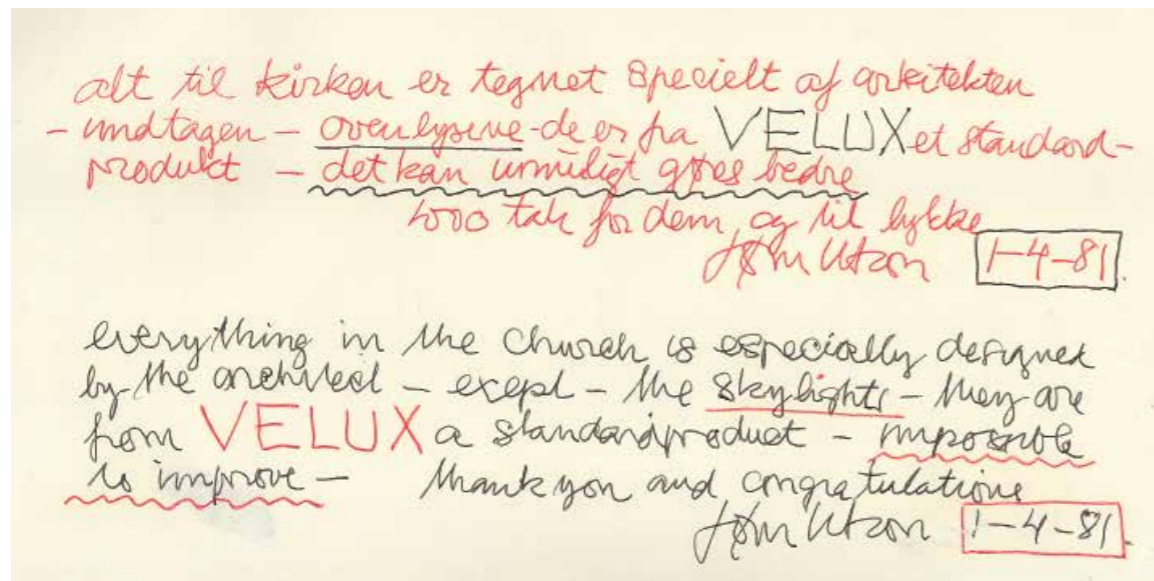 alt til kirken er tegnet specielt af arkitekten
- undtagen - ovenlysene - de er fra VELUX et standard-
produkt - det kan umuligt gøres bedre
1000 tak for dem og til lykke
Jørn Utzon 1-4-81.
everything in the church is especially designed
by the architect - exept - the skylights - they are
from VELUX a standardproduct - impossible
to improve - thank you and congratulations
Jørn Utzon 1-4-81.